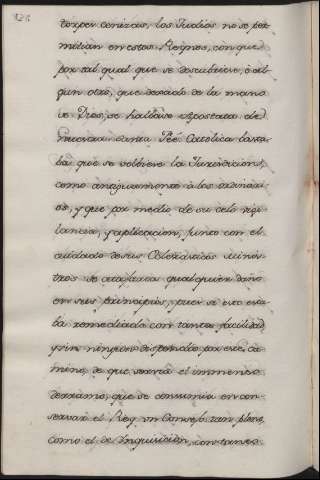 los Judios no se per-
mitian en estos Reynos, con que,
por tal qual que se descubriere, ò al-
gun otro, que dexado de la mano
de Dios, se hallàse Apostata de
nuestra Santa Feè Catolica basta-
ba que se volbiese la Jurisdicion,
como antiguamente à los ordinari-
os, y que por medio de su celo vigi-
lancia, y aplicacion, junto con el
cuidado de sus Eclesiasticos Minis-
tros se atajaràs qualquier daño
en sus principios, pues si esto esta-
ba remediado con tanta facilidad
y sin ningun dispendio por este ca-
mino, de que servia el inmenso
que se consumia en con-
servar el Rey un Consejo tan pleno,
como el de Inquisicion, con tanos